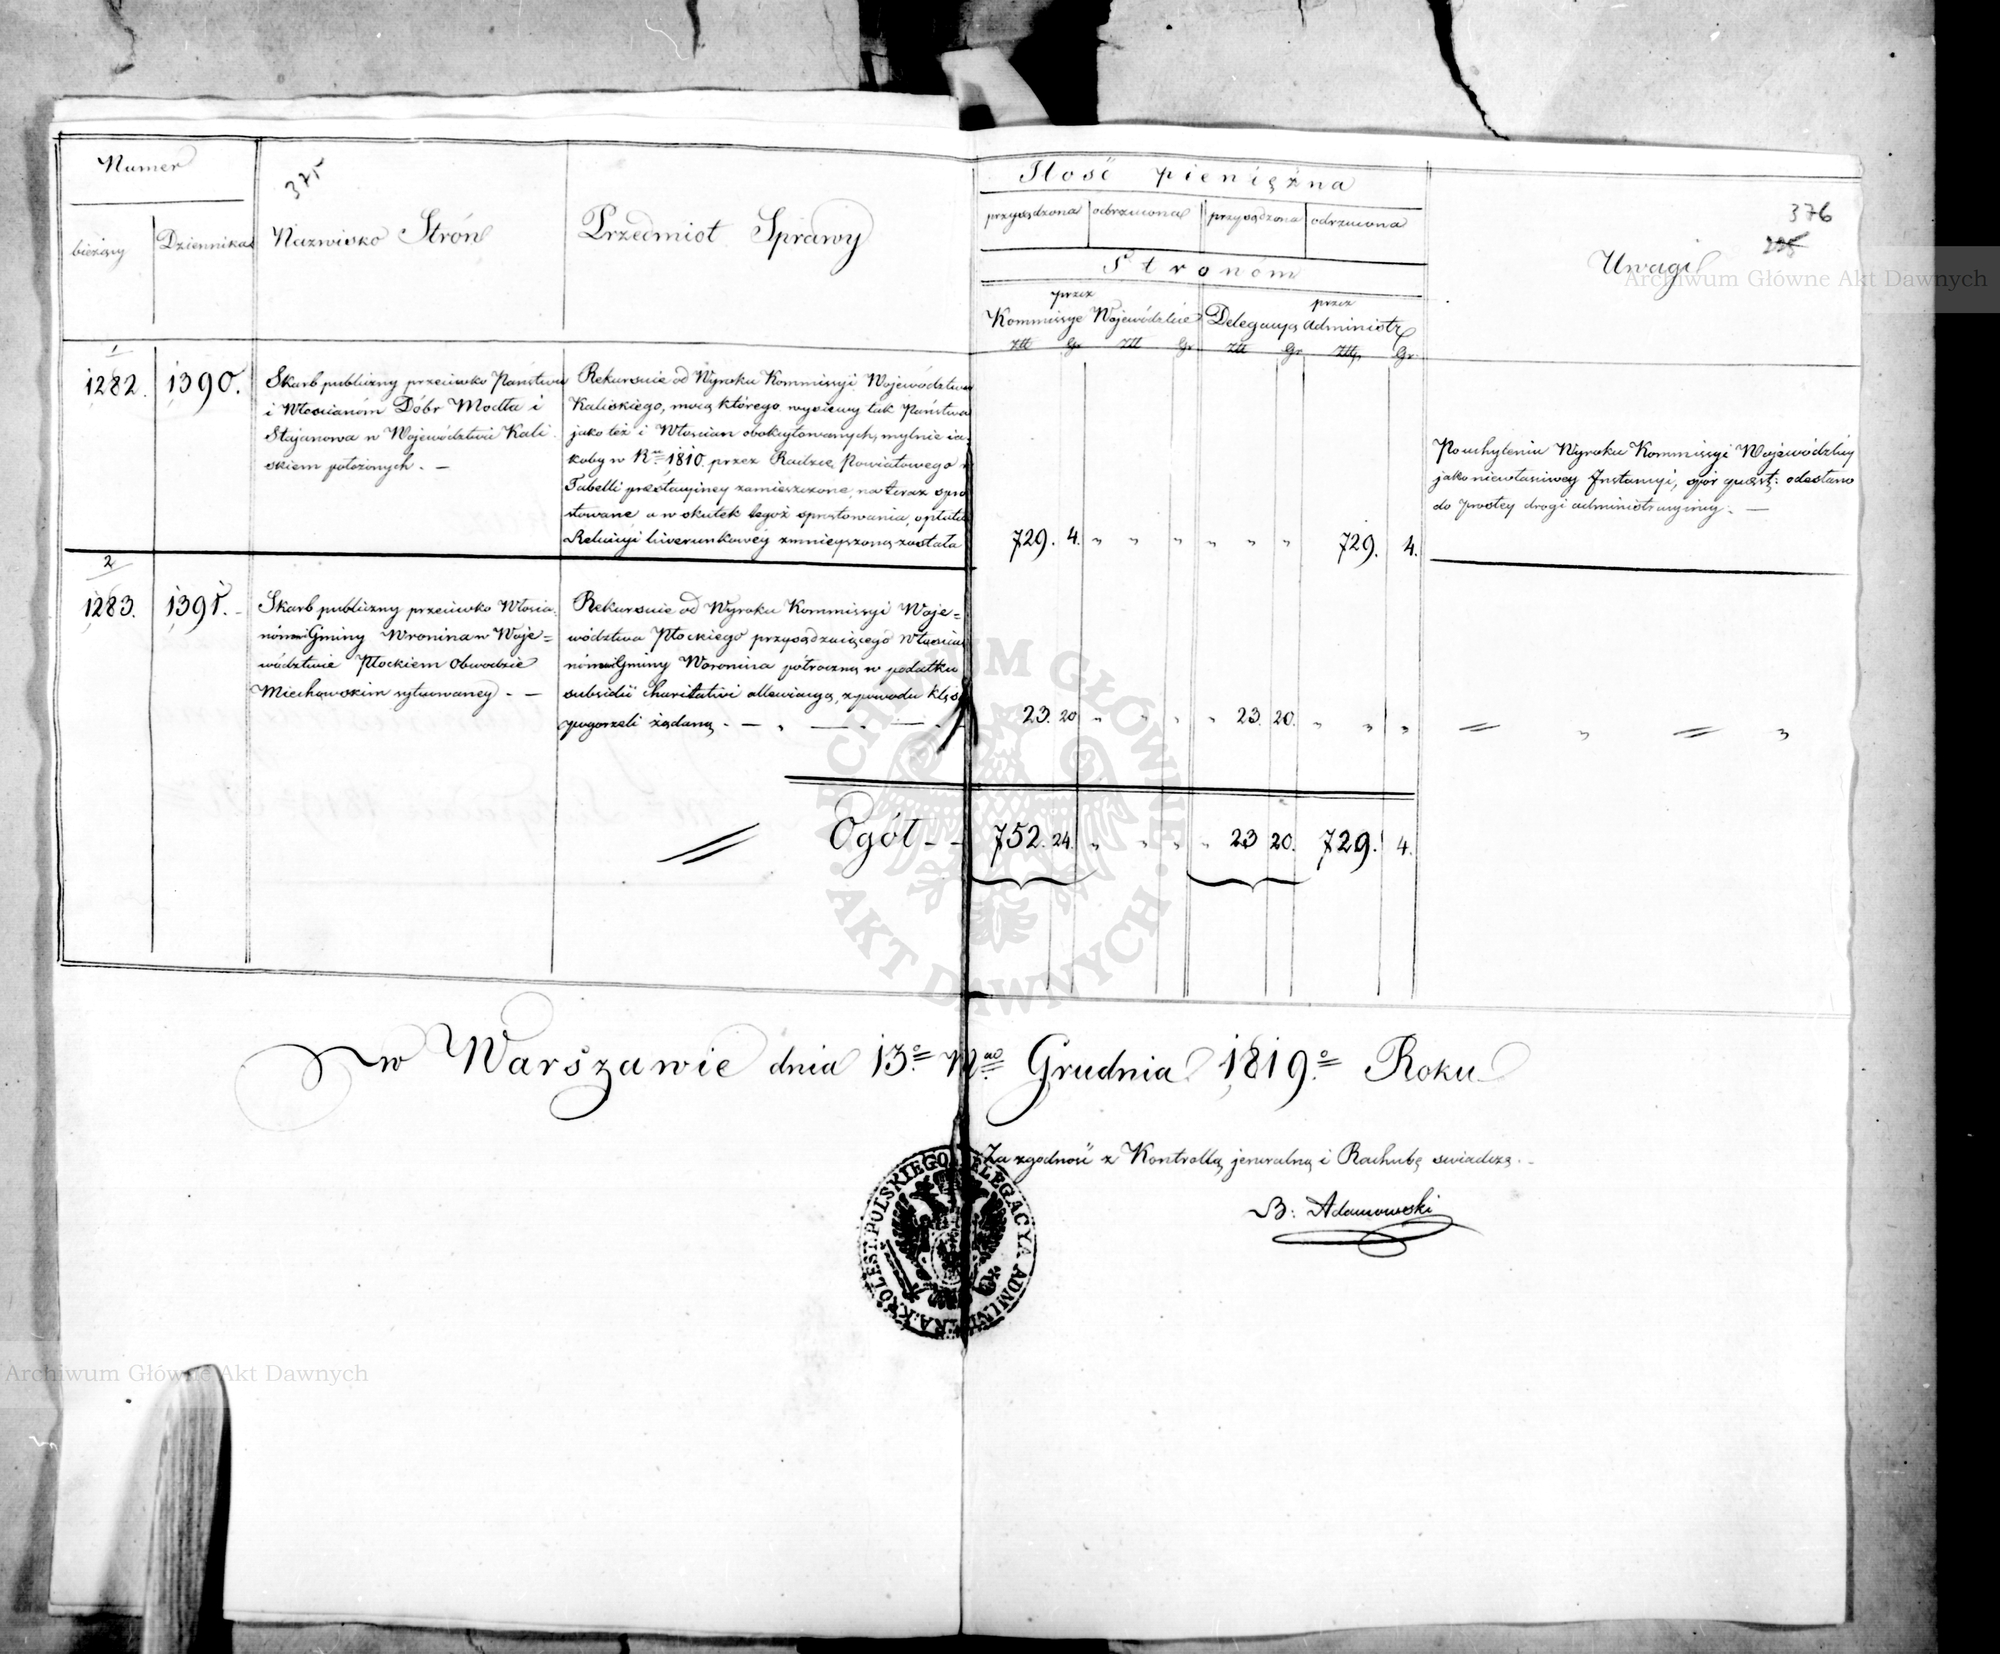 Numer
375
376
225
bieżący
Dziennika
Nazwisko Strón
Przedmiot Sprawy
Ilość pieniężna
przysądzona
odrzucona
przysądzona
odrzucona
Stronóm
przez
Kommissye Wojewódzkie
przez
Delegacyą administr
Złt Gr Złt Gr Złt Gr Złt Gr
Uwagi
1
1282. 1390.
Skarb publiczny przeciwko Państwu
i Włościanóm Dóbr Modła i
Stajanowa w Województwie Kali
skiem położonych. —
Rekursuie od Wyroku Kommissyi Województwa
Kaliskiego, mocą którego wysiewy tak Państwa
jako też i Włościan obokcytowanych, mylnie ia
koby w Rku 1810. przez Radzcę Powiatowego w
Tabelli prestacyiney zamieszczone, na teraz spro
stowane a w skutek tegoż sprostowania, opłata
Reluicyi liwerunkowéy zmnieyszoną została
729. 4. „ „ „ „ „ „ 729. 4.
Po uchyleniu Wyroku Kommissyi Wojewódzkiey
jako niewłaściwey Instancyi, spór quest: odesłano
do prostey drogi administracyiney. —
2
1283. 1391. -
Skarb publiczny przeciwko Włościa
nóm Gminy Wronina w Woje=
wództwie Płockiem Obwodzie
Miechowskim sytuowaney - —
Rekursuie od Wyroku Kommissyi Woje=
wództwa Płockiego przysądzaiącego Włościa
nóm Gminy Woronina półroczną w podatku
subsidii Charitativi allewiacyą, z powodu klęski
pogorzeli żądaną - — „ — . — -
23. 20 „ „ „ „ 23. 20. „ „ „
= „ = „
Ogół - - 752. 24. „ „ „ „ 23 20. 729. 4.
w Warszawie dnia 13o Mca Grudnia 1819o Roku
Za zgodność z Kontrollą jeneralną i Rachubą swiadczą. -
B: Adamowski
KRÓLEST: POLSKIEGO DELEGACYA ADMINI
ARCHIWUM GŁÓWNE AKT DAWNYCH
Archiwum Główne Akt Dawnych
Archiwum Główne Akt Dawnych